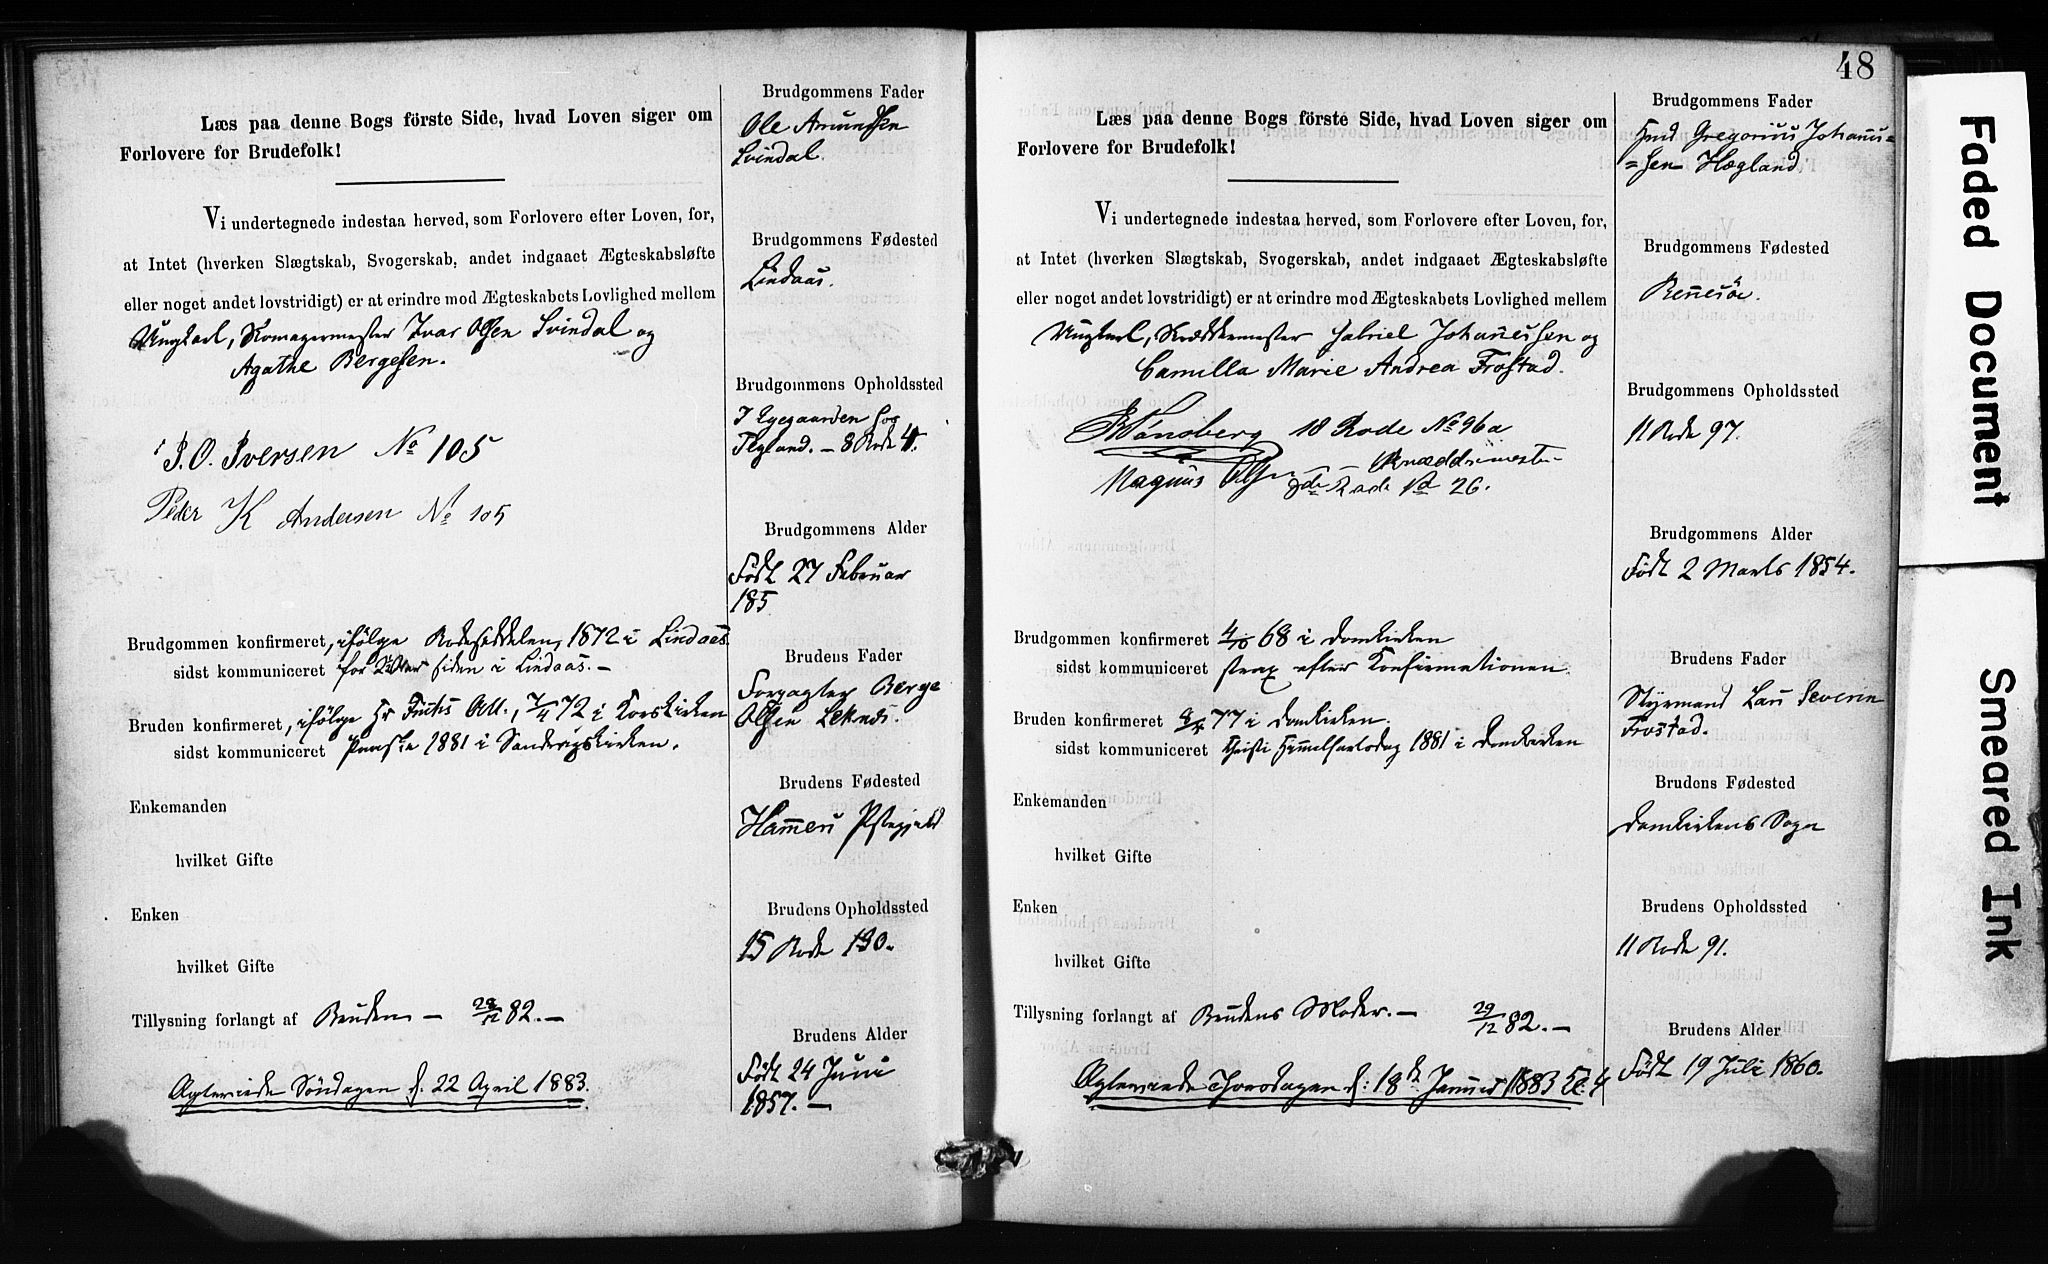 Læs paa denne Bogs förste Side, hvad Loven siger om
Forlovere for Brudefolk!
Vi undertegnede indestaa herved, som Forlovere efter Loven, for,
at Intet (hverken Slægtskab, Svogerskab, andet indgaaet Ægteskabsløfte
eller noget andet lovstridigt) er at erindre mod Ægteskabets Lovlighed mellem
Ungkarl, Skomagermester Ivar Olsen Svindal og
Agathe Bergesen.
P. O. Iversen No 105
Peder K Andersen No 105
Brudgommen konfirmeret, ifölge Rodeseddelen, 1872 i Lindaas
sidst kommuniceret for siden i Lindaas. —
Bruden konfirmeret, ifölge Hr Fuchs Att., 7/4 72 i Korskirken
sidst kommuniceret Paaske 1881 i Sandvigskirken.
Enkemanden
hvilket Gifte
Enken
hvilket Gifte
Tillysning forlangt af Bruden — 28/12 82. —
Agtevirede Söndagen d. 22 April 1883.
Brudgommens Fader
Ole Amundsen
Svindal.
Brudgommens Fødested
Lindaas.
Brudgommens Opholdssted
I Egegaarden hos
Tegland. — 8 Rode 4.
Brudgommens Alder
Födt 27 Februar
185
Brudens Fader
Forpagter Berge
Olsen Leknes.
Brudens Fødested
Hammers Pstegjeld
Brudens Opholdssted
15 Rode 130.
Brudens Alder
Födt 24 Juni
1857. —
48
Læs paa denne Bogs förste Side, hvad Loven siger om
Forlovere for Brudefolk!
Vi undertegnede indestaa herved, som Forlovere efter Loven, for,
at Intet (hverken Slægtskab, Svogerskab, andet indgaaet Ægteskabsløfte
eller noget andet lovstridigt) er at erindre mod Ægteskabets Lovlighed mellem
Ungkarl, Skræddermester Gabriel Johannessen og
Camilla Marie Andrea Frostad.
Tönsberg 18 Rode No 96a
Magnus Olsen — Skræddermester
Rode No 26.
Brudgommen konfirmeret 4/10 68 i Domkirken
sidst kommuniceret strax efter Konfirmationen.
Bruden konfirmeret 77 i Domkirken.
sidst kommuniceret Christi Himmelfartsdag 1881 i Domkirken
Enkemanden
hvilket Gifte
Enken
hvilket Gifte
Tillysning forlangt af Brudens Moder. — 29/12 82. —
Agtevirede Thorsdagen d: 18de Januar 1883 Kl. 4
Brudgommens Fader
Gregorius Johannes=
=sen Hægland
Brudgommens Fødested
Rennesöe.
Brudgommens Opholdssted
11 Rode 97.
Brudgommens Alder
Födt 2 Marts 1854.
Brudens Fader
Styrmand Lau Severin
Frostad.
Brudens Fødested
Domkirkens Sogn
Brudens Opholdssted
11 Rode 91.
Brudens Alder
Födt 19 Juli 1860.
Faded Document
Smeared Ink